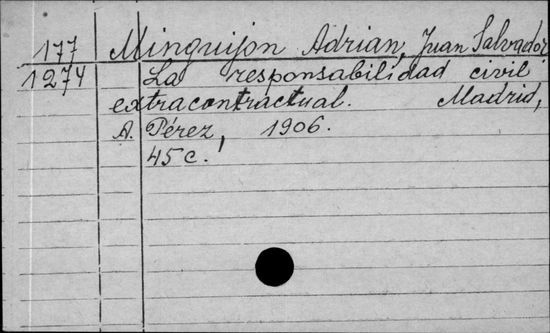 177 Minguijon Adrian, Juan Salvador
1274 La responsabilidad civil
extracontractual. Madrid,
A. Pérez, 1906.
45 c.